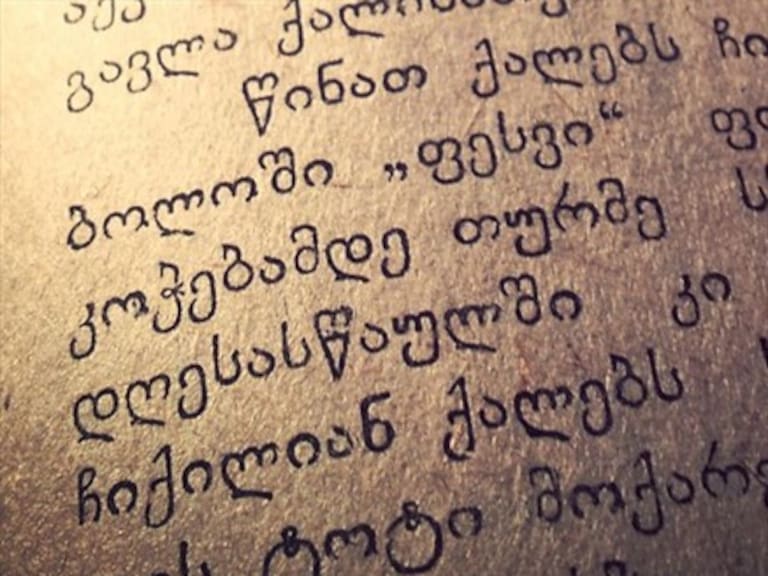 გავლა
წინათ ქალებს ჩი
ბოლოში „ფესვი“
კოჭებამდე თურმე
დღესასწაულში კი
ჩიქილიან ქალებს
ტოტი მოქარ